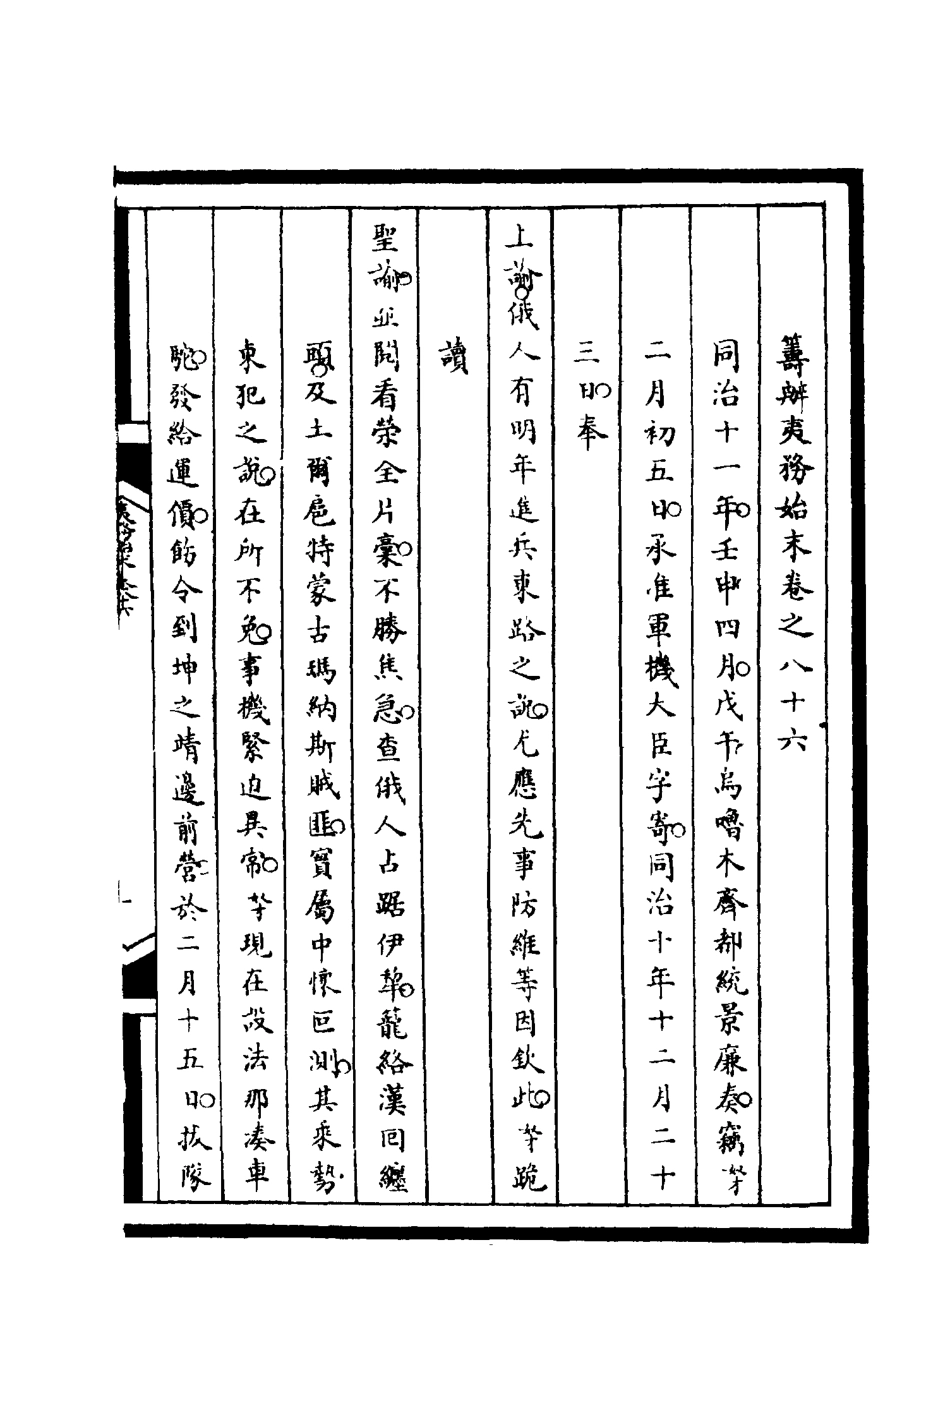 籌辦夷務始末卷之八十六
同治十一年。壬申四月。戊午烏嚕木齊都統景廉奏。竊奴才
二月初五日。承准軍機大臣字寄。同治十年十二月二十
三日。奉
上諭。俄人有明年進兵東路之說。尤應先事防維等因欽此。奴才跪
讀
聖諭。並閱看榮全片稾。不勝焦急。查俄人占踞伊犂。籠絡漢回纏
頭。及土爾扈特蒙古瑪納斯賊匪。實屬中懷叵測。其乘勢
東犯之說。在所不免。事機緊迫異常。奴才現在設法那湊車
駝。發給運價。飭令到坤之靖邊前營。於二月十五日。拔隊